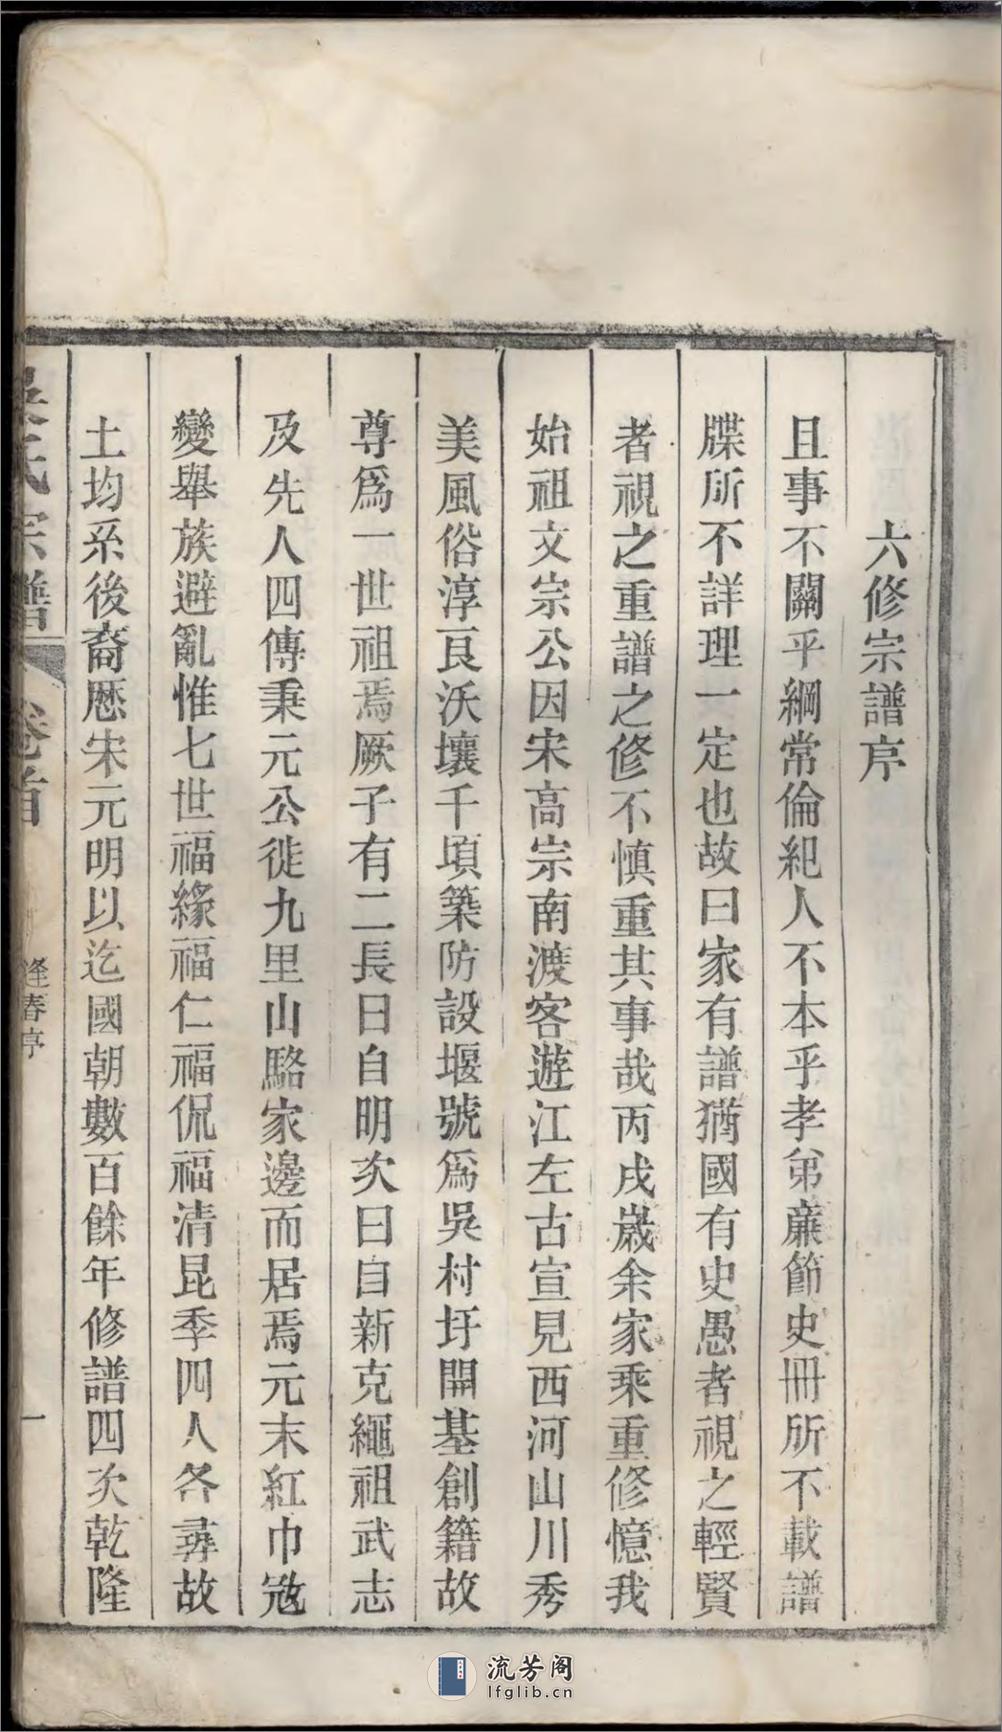 六修宗譜序
且事不關乎綱常倫紀人不本乎孝弟亷節史冊所不載譜
牒所不詳理一定也故曰家有譜猶國有史愚者視之輕賢
者視之重譜之修不慎重其事哉丙戌嵗余家乘重修憶我
始祖文宗公因宋高宗南渡客遊江左古宣見西河山川秀
美風俗淳良沃壤千頃築防設堰號爲吳村圩開基創籍故
尊爲一世祖焉厥子有二長曰自明次曰自新克繩祖武志
及先人四傳秉元公徙九里山駱家邊而居焉元末紅巾㓂
變舉族避亂惟七世福緣福仁福侃福清昆季四人各尋故
土均系後裔歷宋元明以迄國朝數百餘年修譜四次乾隆
氏宗譜
卷首
逢春亭
一
流芳阁
lfglib.cn